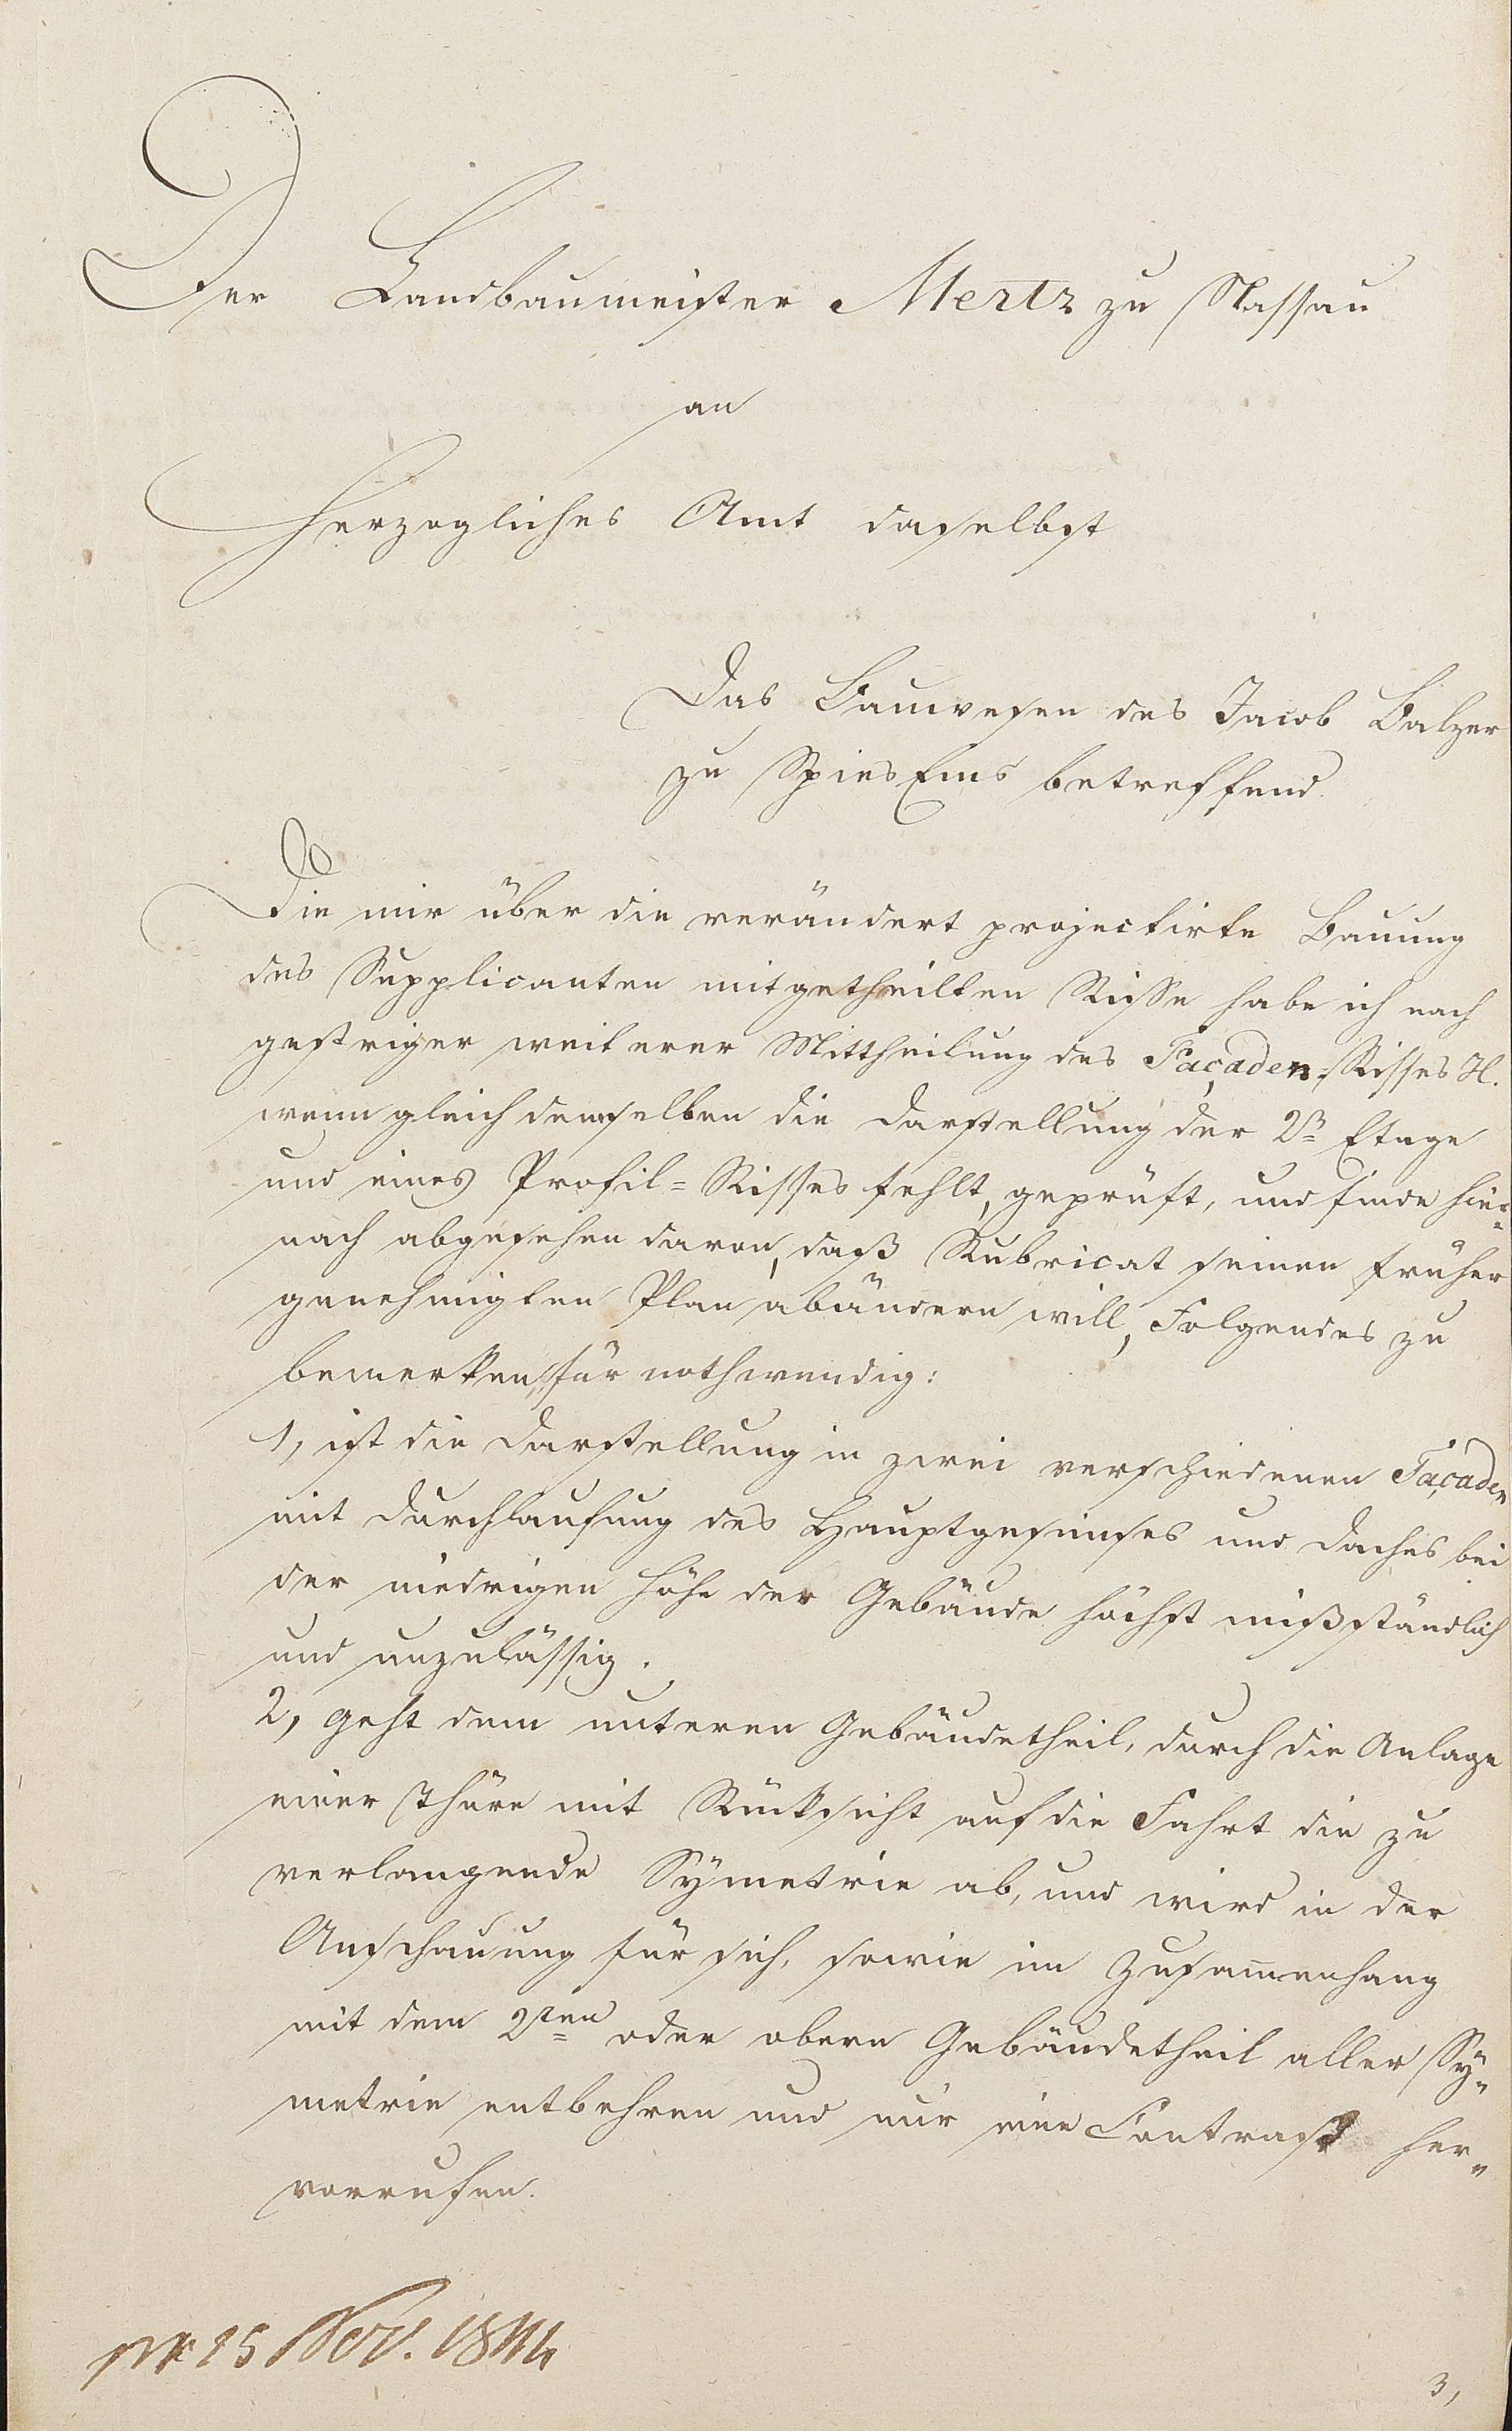 Der Landbaumeister Mertz zu Nassau
an
Herzogliches Amt daselbst
Das Bauwesen des Jacob Balzer
zu Spies Ems betreffend.
Die mir über die verändert projectirte Bauung
des Supplicanten mitgetheilten Risse habe ich nach
gestriger weiterer Mittheilung des Façaden-Risses H.
wenn gleich demselben die Darstellung der 2n Etage
und eines Profil=Risses fehlt, geprüft, und finde hier=
nach abgesehen davon, daß Rubricat seinen früher
genehmigten Plan abändern will, Folgendes zu
bemerken für nothwendig:
1, ist die Darstellung in zwei verschiedenen Façaden
mit Durchlaufung des Hauptgesimses und Daches bei
der niedrigen Höhe der Gebäude höchst mißständlich
und unzulässig.
2, geht dem unteren Gebäudetheil, durch die Anlage
einer Thüre mit Rücksicht auf die Fahrt die zu
verlangende Sÿmetrie ab, und wird in der
Anschauung für sich, sowie im Zusammenhang
mit dem 2ten oder obern Gebäudetheil aller Sÿ=
metrie entbehren und nur eine Contrast her=
vorrufen.
pr 25 Nov. 1844
3,